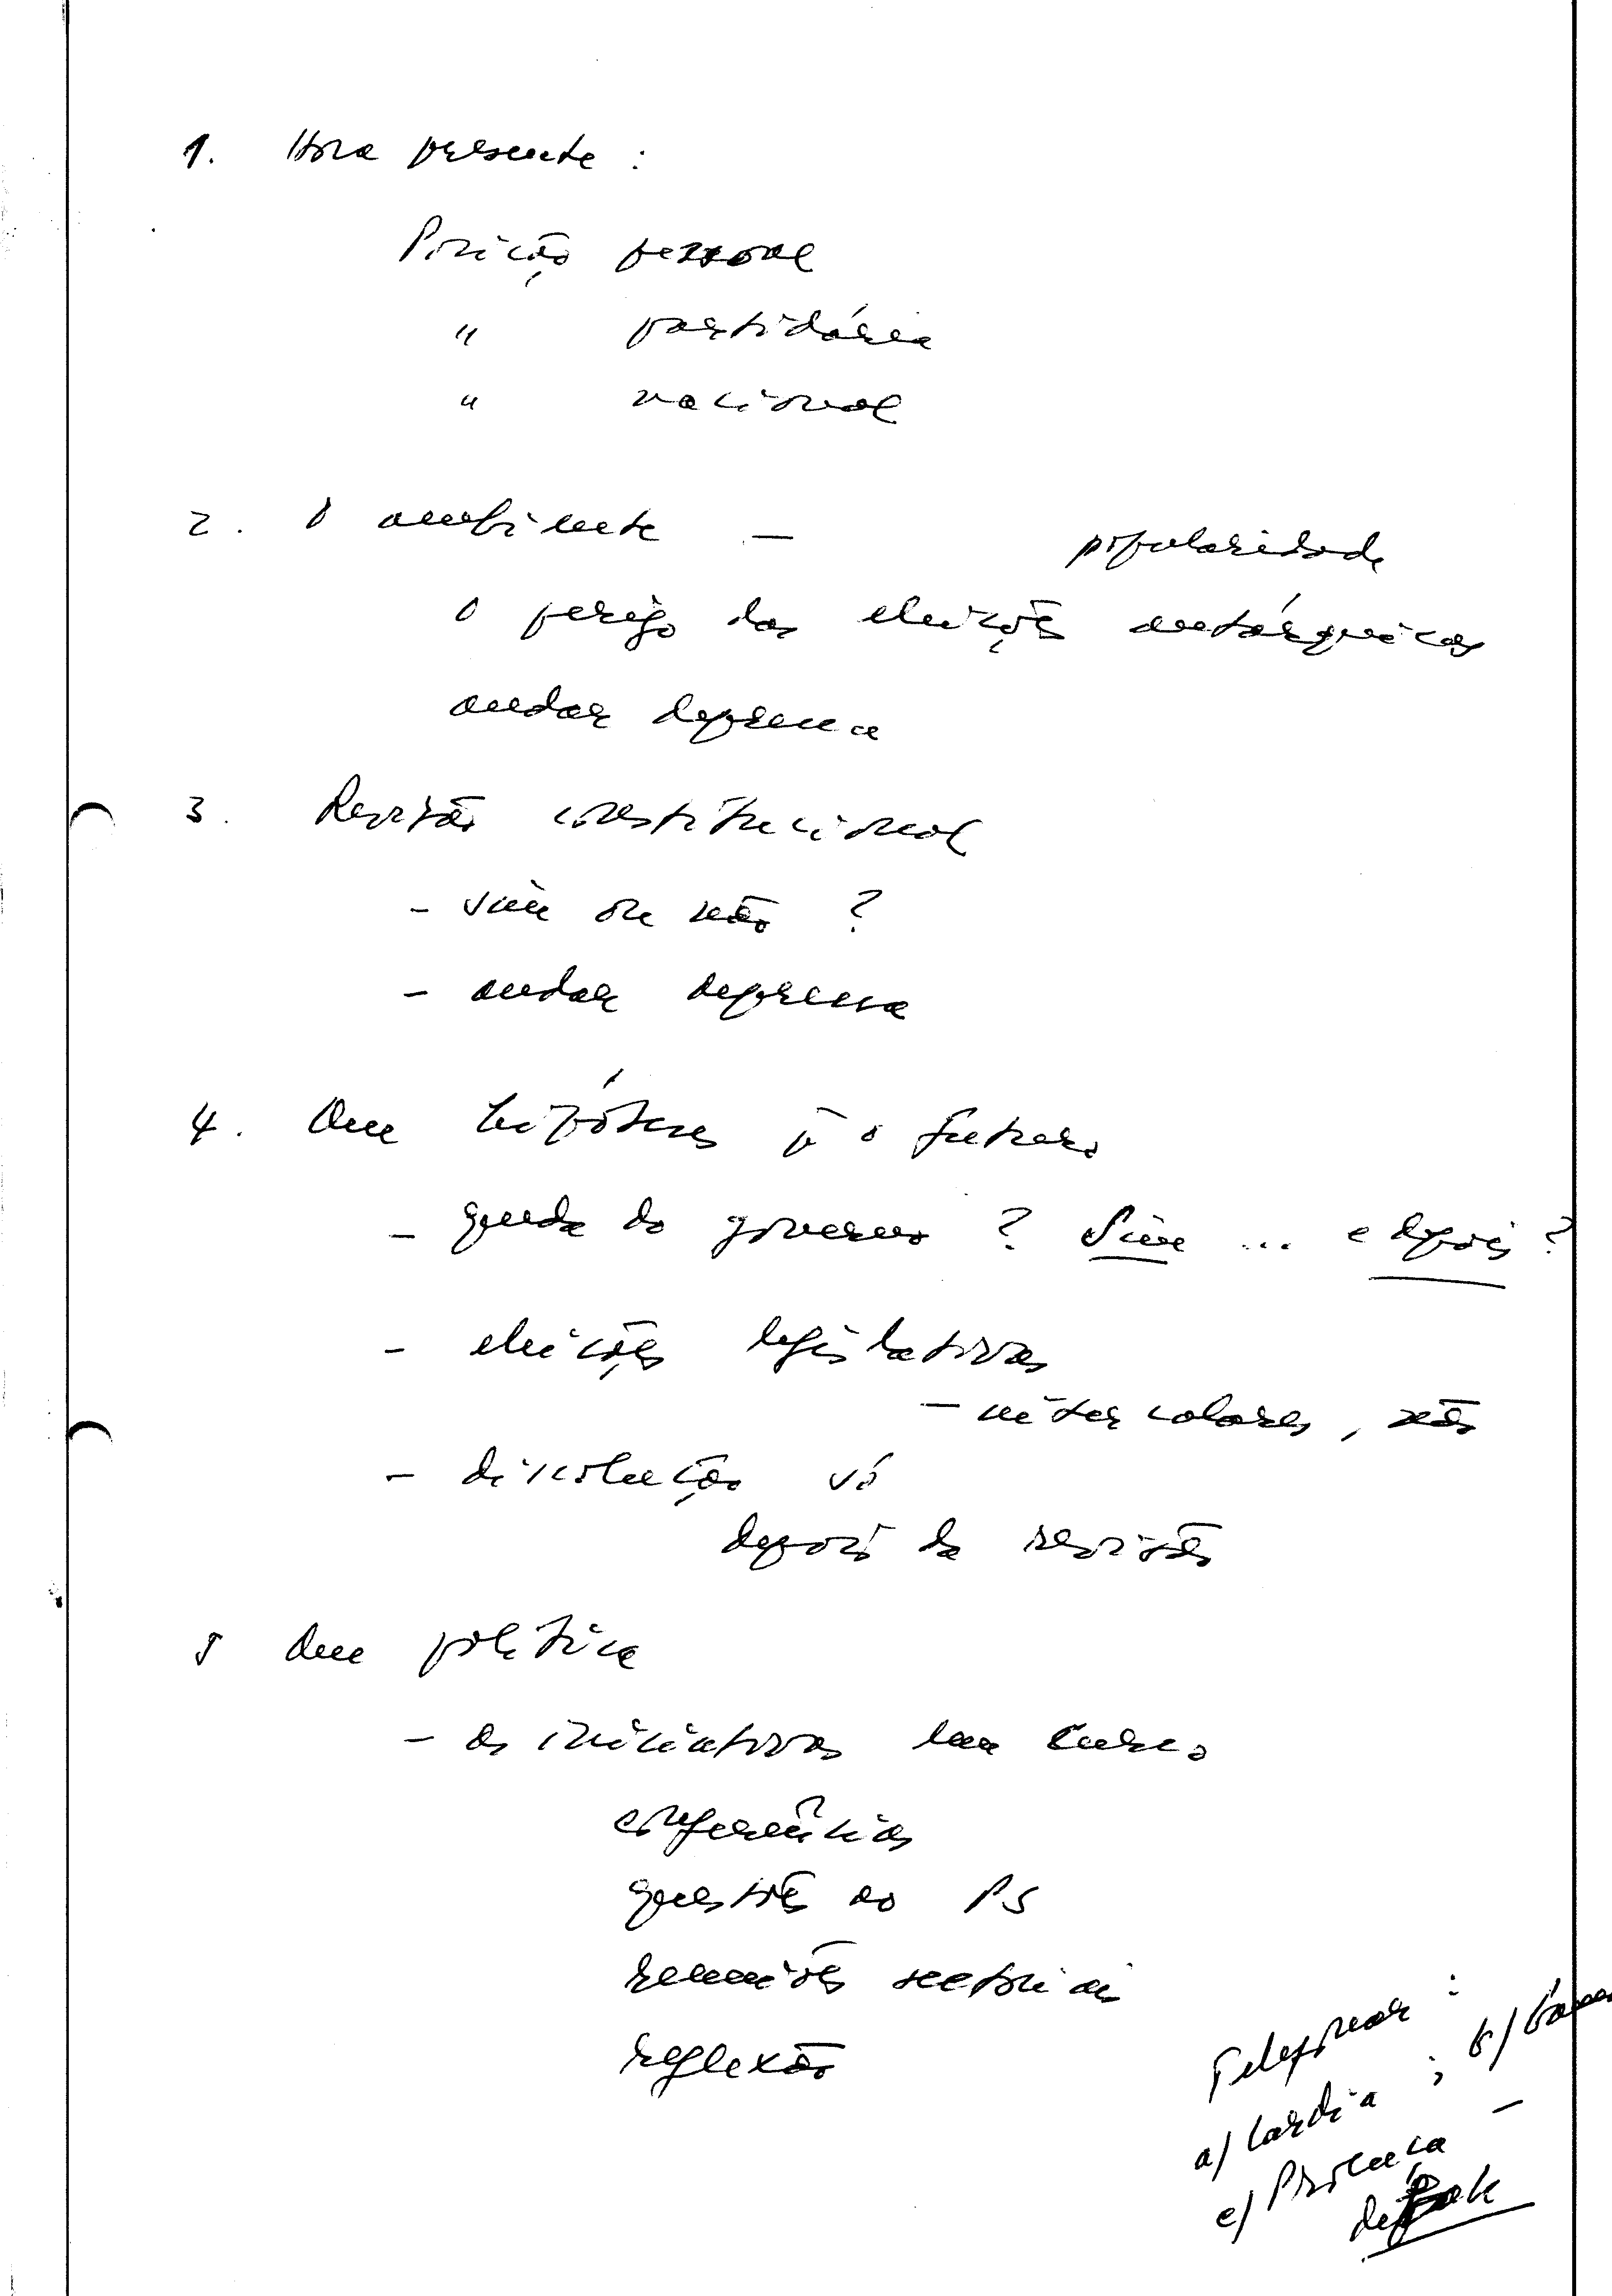 1. Hora presente :
Posição pessoal
" partidária
" nacional
2. O ambiente — popularidade
O perigo das eleições autárquicas
andar depressa
3. Revisão constitucional
- sim ou não ?
- andar depressa
4. Que hipóteses p̄ o futuro
- queda do governo ? Sim ... e depois ?
- eleições legislativas
- intercalares, não
- dissolução só
depois da revisão
5 Que política
- as iniciativas em curso
conferências
questões ao PS
reuniões sectoriais
reflexão
Telefonar :
a) Cardia ; b)
c) Proença —